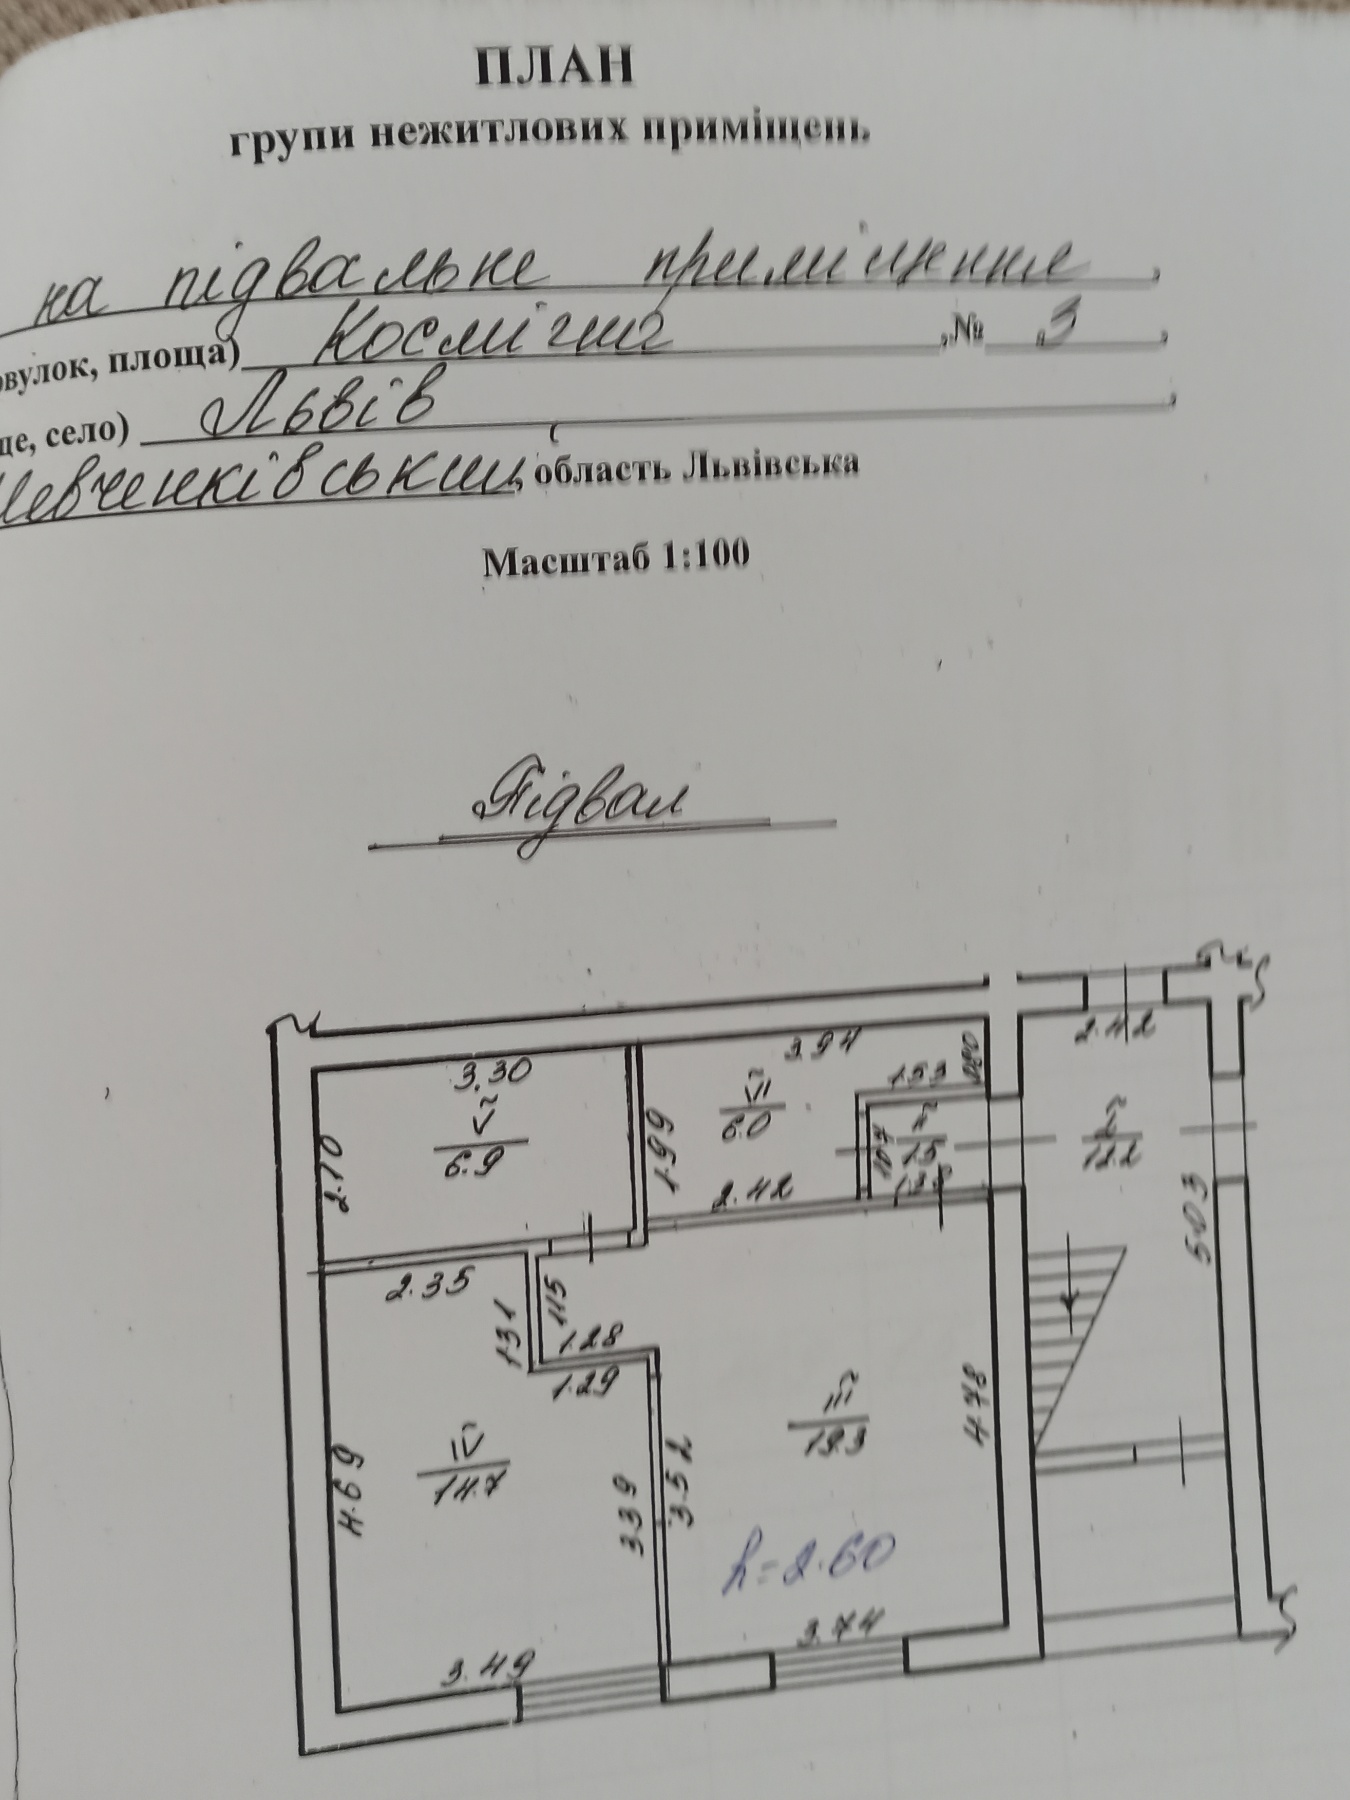 ПЛАН
групи нежитлових приміщень
на підвальне приміщення,
овулок, площа) Космічна, № 3,
ще, село) Львів,
Шевченківський, область Львівська
Масштаб 1:100
Підвал
3.94
2.42
3.30
VI
6.0
1.53
0.80
V
6.9
2.10
1.99
1.07
II
1.5
I
12.2
2.42
1.38
5.03
2.35
1.31
1.15
1.28
1.29
III
19.3
4.78
IV
14.7
4.69
3.39
3.52
h=2.60
3.74
3.49